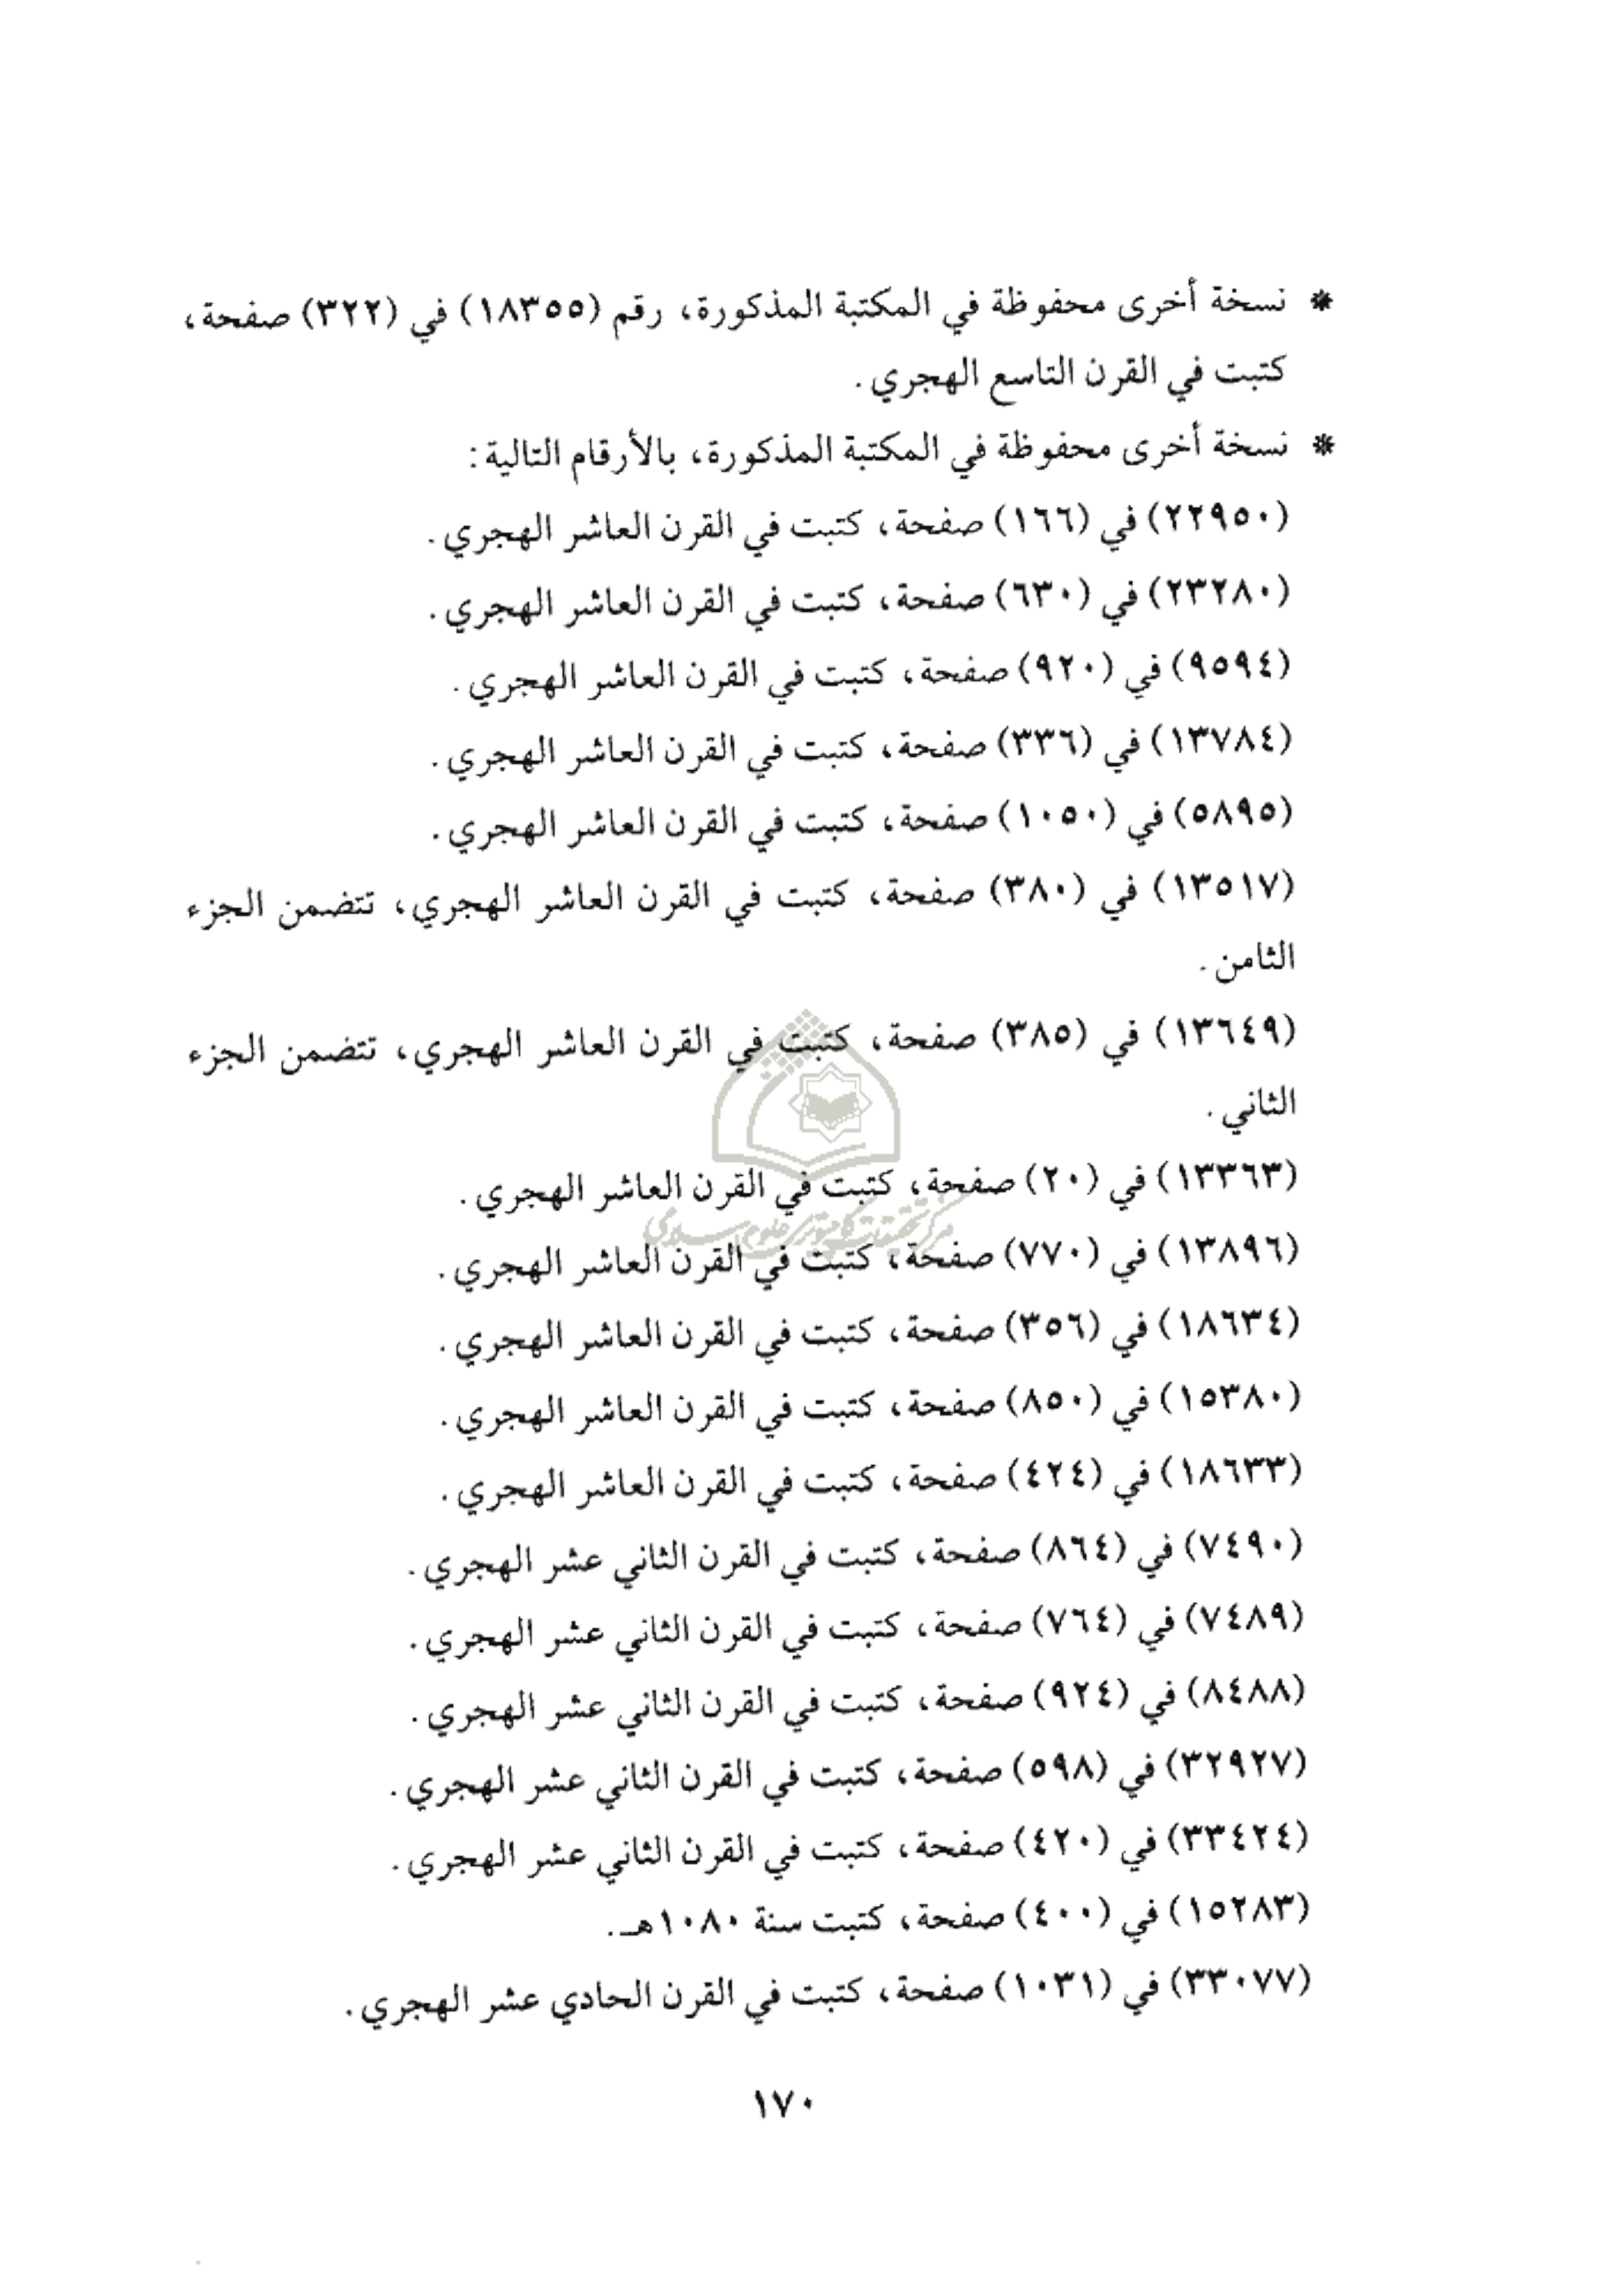 * نسخة أخرى محفوظة في المكتبة المذكورة، رقم (١٨٣٥٥) في (٣٢٢) صفحة،
كتبت في القرن التاسع الهجري.
* نسخة أخرى محفوظة في المكتبة المذكورة، بالأرقام التالية:
(٢٢٩٥٠) في (١٦٦) صفحة، كتبت في القرن العاشر الهجري.
(٢٣٢٨٠) في (٦٣٠) صفحة، كتبت في القرن العاشر الهجري.
(٩٥٩٤) في (٩٢٠) صفحة، كتبت في القرن العاشر الهجري.
(١٣٧٨٤) في (٣٣٦) صفحة، كتبت في القرن العاشر الهجري.
(٥٨٩٥) في (١٠٥٠) صفحة، كتبت في القرن العاشر الهجري.
(١٣٥١٧) في (٣٨٠) صفحة، كتبت في القرن العاشر الهجري، تتضمن الجزء
الثامن.
(١٣٦٤٩) في (٣٨٥) صفحة، كتبت في القرن العاشر الهجري، تتضمن الجزء
الثاني.
(١٣٣٦٣) في (٢٠) صفحة، كتبت في القرن العاشر الهجري.
مركز تحقیقات کامپیوتری علوم اسلامی
(١٣٨٩٦) في (٧٧٠) صفحة، كتبت في القرن العاشر الهجري.
(١٨٦٣٤) في (٣٥٦) صفحة، كتبت في القرن العاشر الهجري.
(١٥٣٨٠) في (٨٥٠) صفحة، كتبت في القرن العاشر الهجري.
(١٨٦٣٣) في (٤٢٤) صفحة، كتبت في القرن العاشر الهجري.
(٧٤٩٠) في (٨٦٤) صفحة، كتبت في القرن الثاني عشر الهجري.
(٧٤٨٩) في (٧٦٤) صفحة، كتبت في القرن الثاني عشر الهجري.
(٨٤٨٨) في (٩٢٤) صفحة، كتبت في القرن الثاني عشر الهجري.
(٣٢٩٢٧) في (٥٩٨) صفحة، كتبت في القرن الثاني عشر الهجري.
(٣٣٤٢٤) في (٤٢٠) صفحة، كتبت في القرن الثاني عشر الهجري.
(١٥٢٨٣) في (٤٠٠) صفحة، كتبت سنة ١٠٨٠هـ.
(٣٣٠٧٧) في (١٠٣١) صفحة، كتبت في القرن الحادي عشر الهجري.
١٧٠